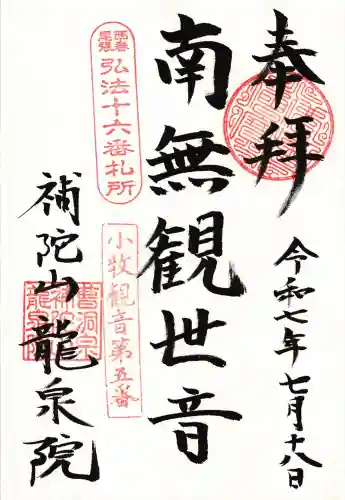 奉拝
令和七年七月十八日
南無観世音
尾張
西春
弘法十六番札所
小牧観音第五番
補陀山龍泉院
曹洞宗
補陀山
龍泉院